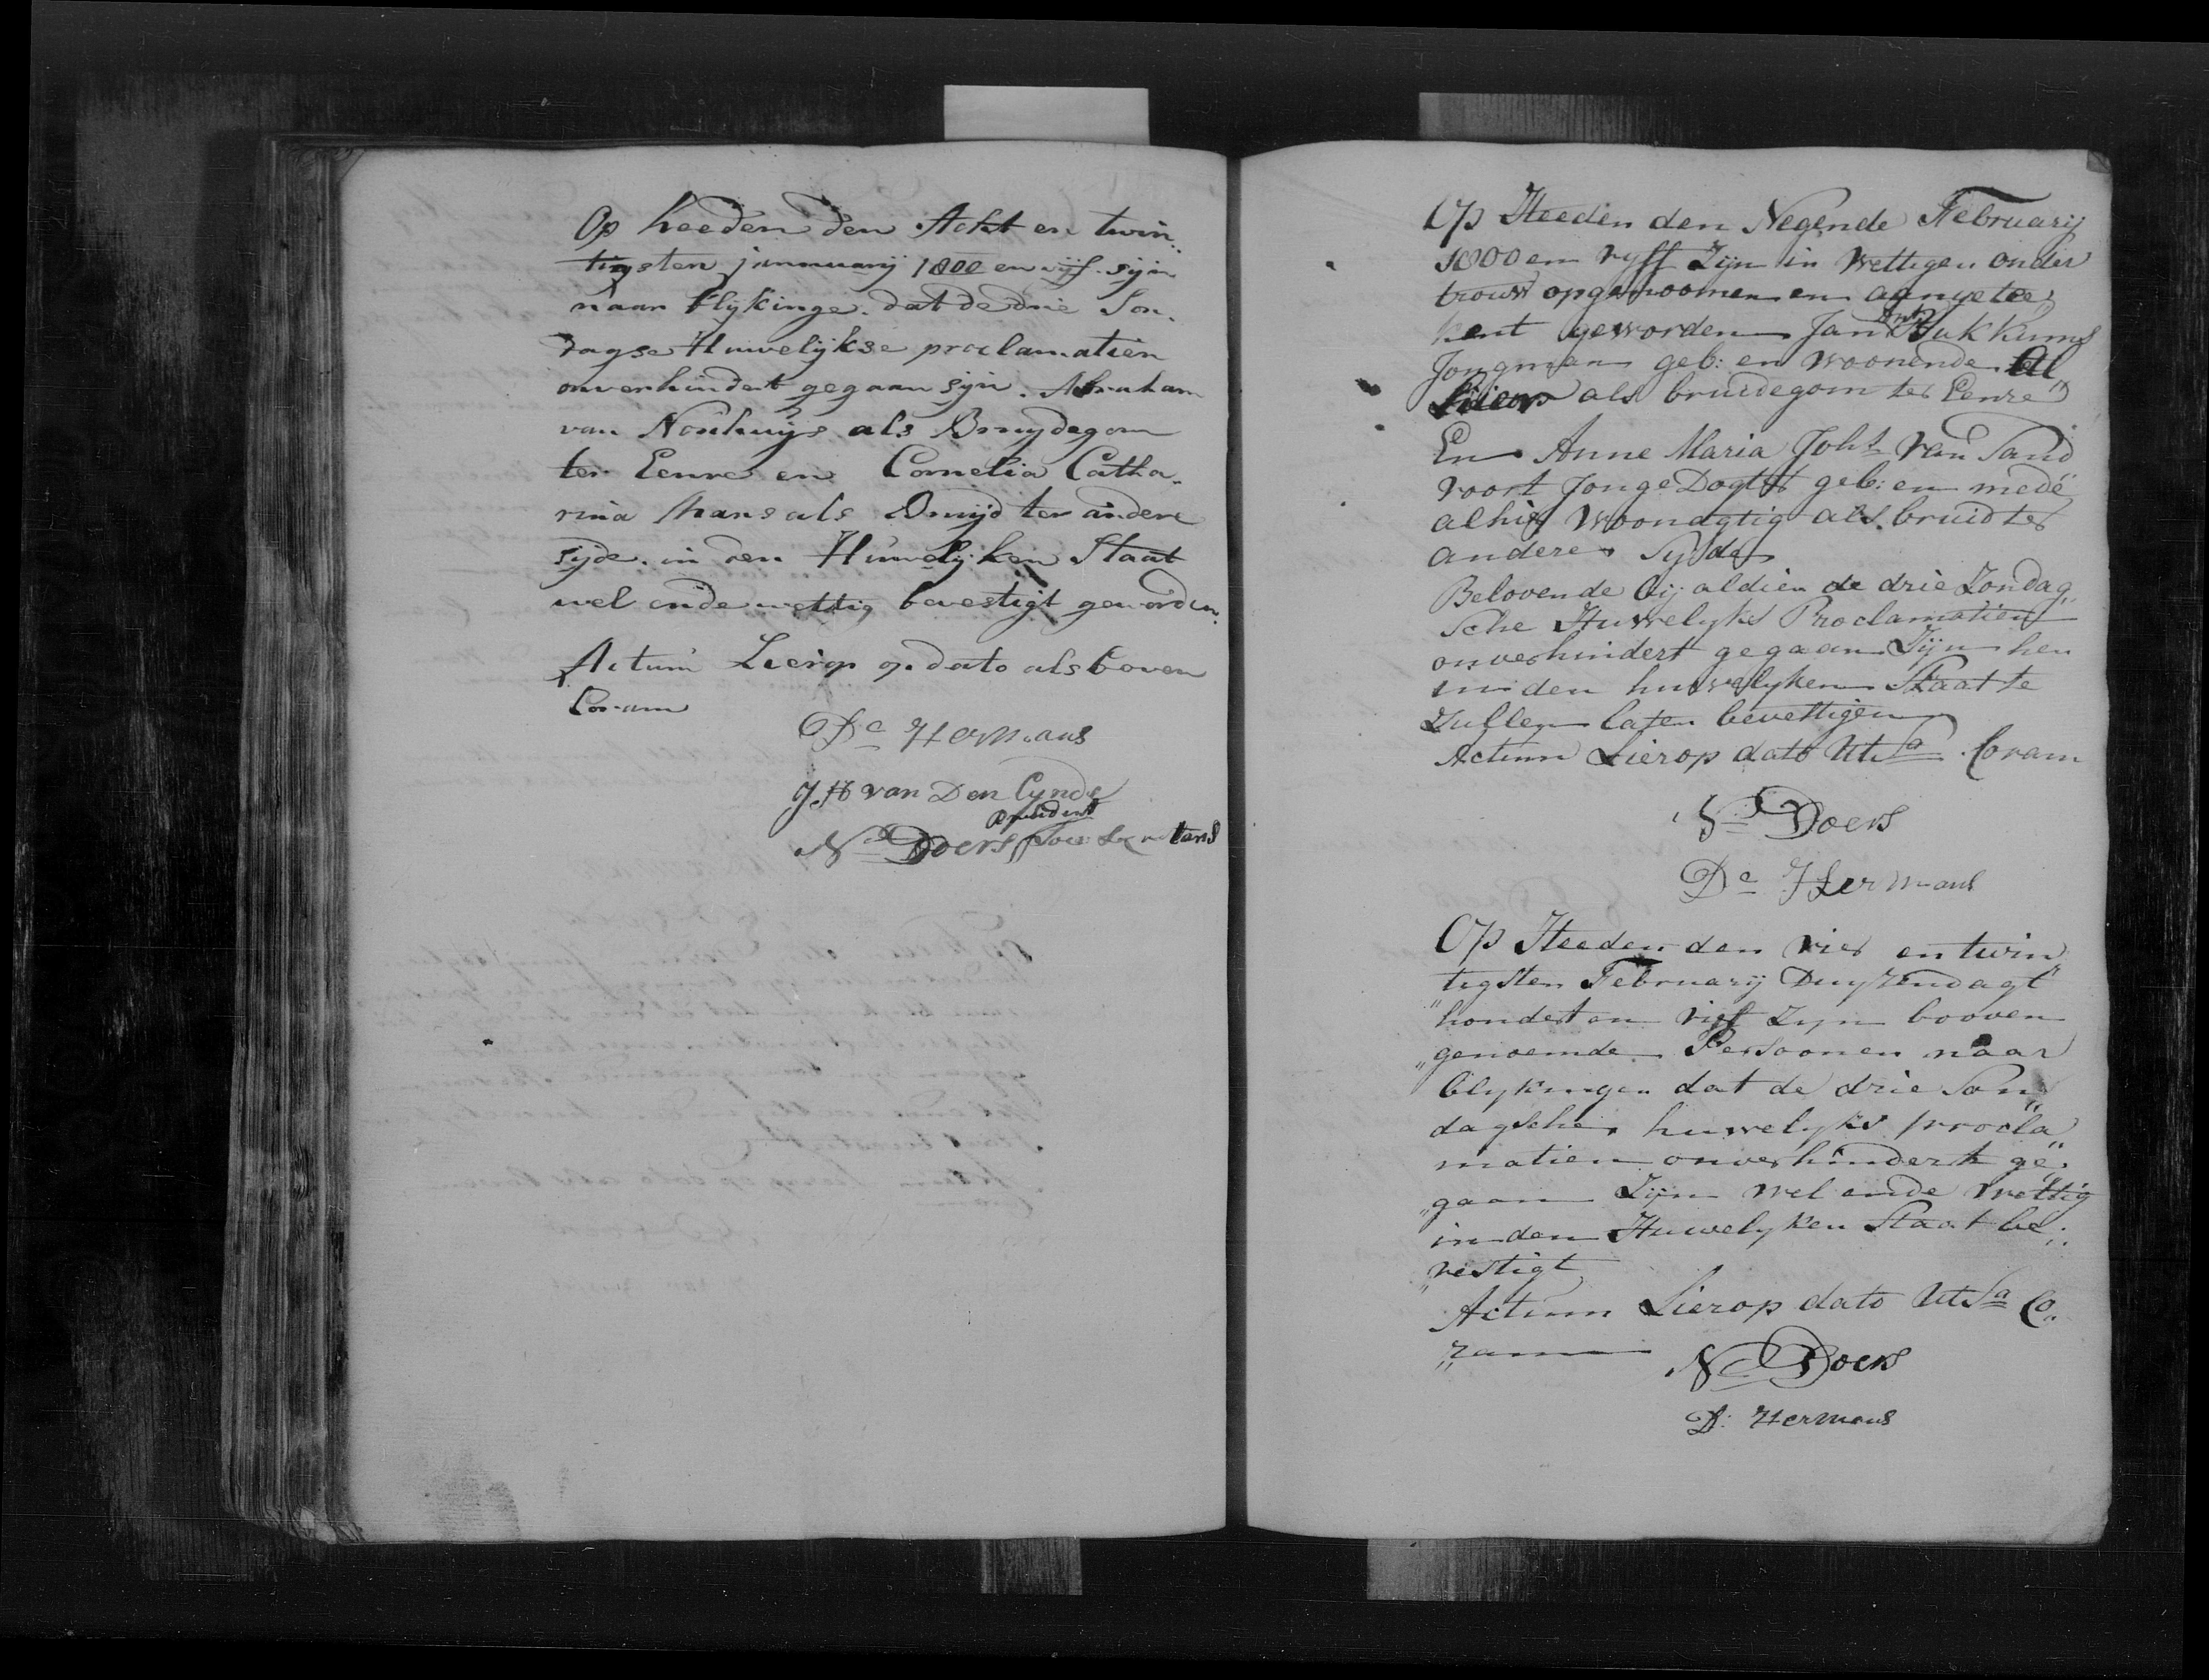 Op heeden den Acht en twin„
tigsten januuarij 1800 en vijf. sijn
naar blijkinge. dat de drie Son„
dagse Huwelijkse proclamatien
onverhindert gegaan sijn. Abraham
van Nouhuijs als Bruydegom
ter Eenre en Cornelia Catha„
rina Thans als Bruijd ter andere
sijde. in den Huwelijken Staat
wel ende wettig bevestigt geworden.
Actum Lierop op dato als boven
Coram
De Hermans
J. H van Den Eynde
President
Nd Doers Loco Secretaris
Op Heeden den Negende Februarij
1800 en vyff Zijn in Wettigen onder
trouw opgenoomen en aangetee„
kent geworden Jan Anth
Jongman geb: en woonende Al
Lierop als bruidegom ter Eenre
En Anne Maria Joht van Sand
voort Jonge Dogter geb: en mede
alhier Woonagtig als bruid ter
andere Syde
Belovende bij aldien de drie Zondag„
sche Huwelyks Proclamatien
onverhindert gegaan Zijn hen
in den huwelyken Staat te
Zullen laten bevestigen
Actum Lierop dato Ut Sa Coram
Nd Doers
De Hermans
Op Heeden den vier en twin
tigsten Februarij Duyzendagt„
„hondert en vijf Zyn booven
„genoemde Persoonen naar
blykingen dat de drie Son„
dagsche huwelyks procla„
matien onverhindert ge„
„gaan Zijn wel ende wettig
in den Huwelyken Staat be„
„vestigt
Actum Lierop dato Ut Sa Co„
„ram
Nd Doers
D: Hermans